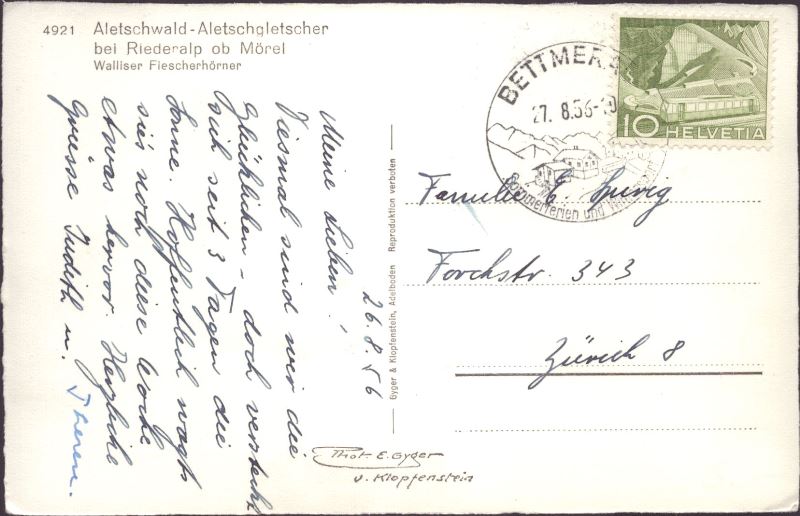 4921 Aletschwald-Aletschgletscher
bei Riederalp ob Mörel
Walliser Fiescherhörner
BETTMER
27. 8.56-10
Sommerferien und
10 HELVETIA
26.8.56
Meine Lieben!
Diesmal sind wir die
Glücklichen - doch versteckt
sich seit 3 Tagen die
Sonne. Hoffentlich wagt
sie's noch diese Woche
etwas hervor. Herzliche
Grüsse Judith u.
Gyger & Klopfenstein, Adelboden Reproduktion verboten
Familie E.
Forchstr. 343
Zürich 8
Phot. E. Gyger
u. Klopfenstein